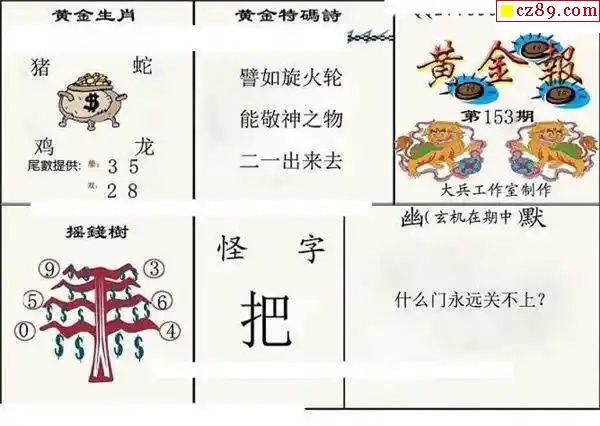 cz89.com
黄金生肖
猪 蛇
$
鸡 龙
尾數提供: 单: 3 5
双: 2 8
黄金特碼詩
譬如旋火轮
能敬神之物
二一出来去
黄金報
第153期
大兵工作室制作
摇錢樹
9 3
5 6
0 4
怪 字
把
幽(玄机在期中)默
什么门永远关不上?